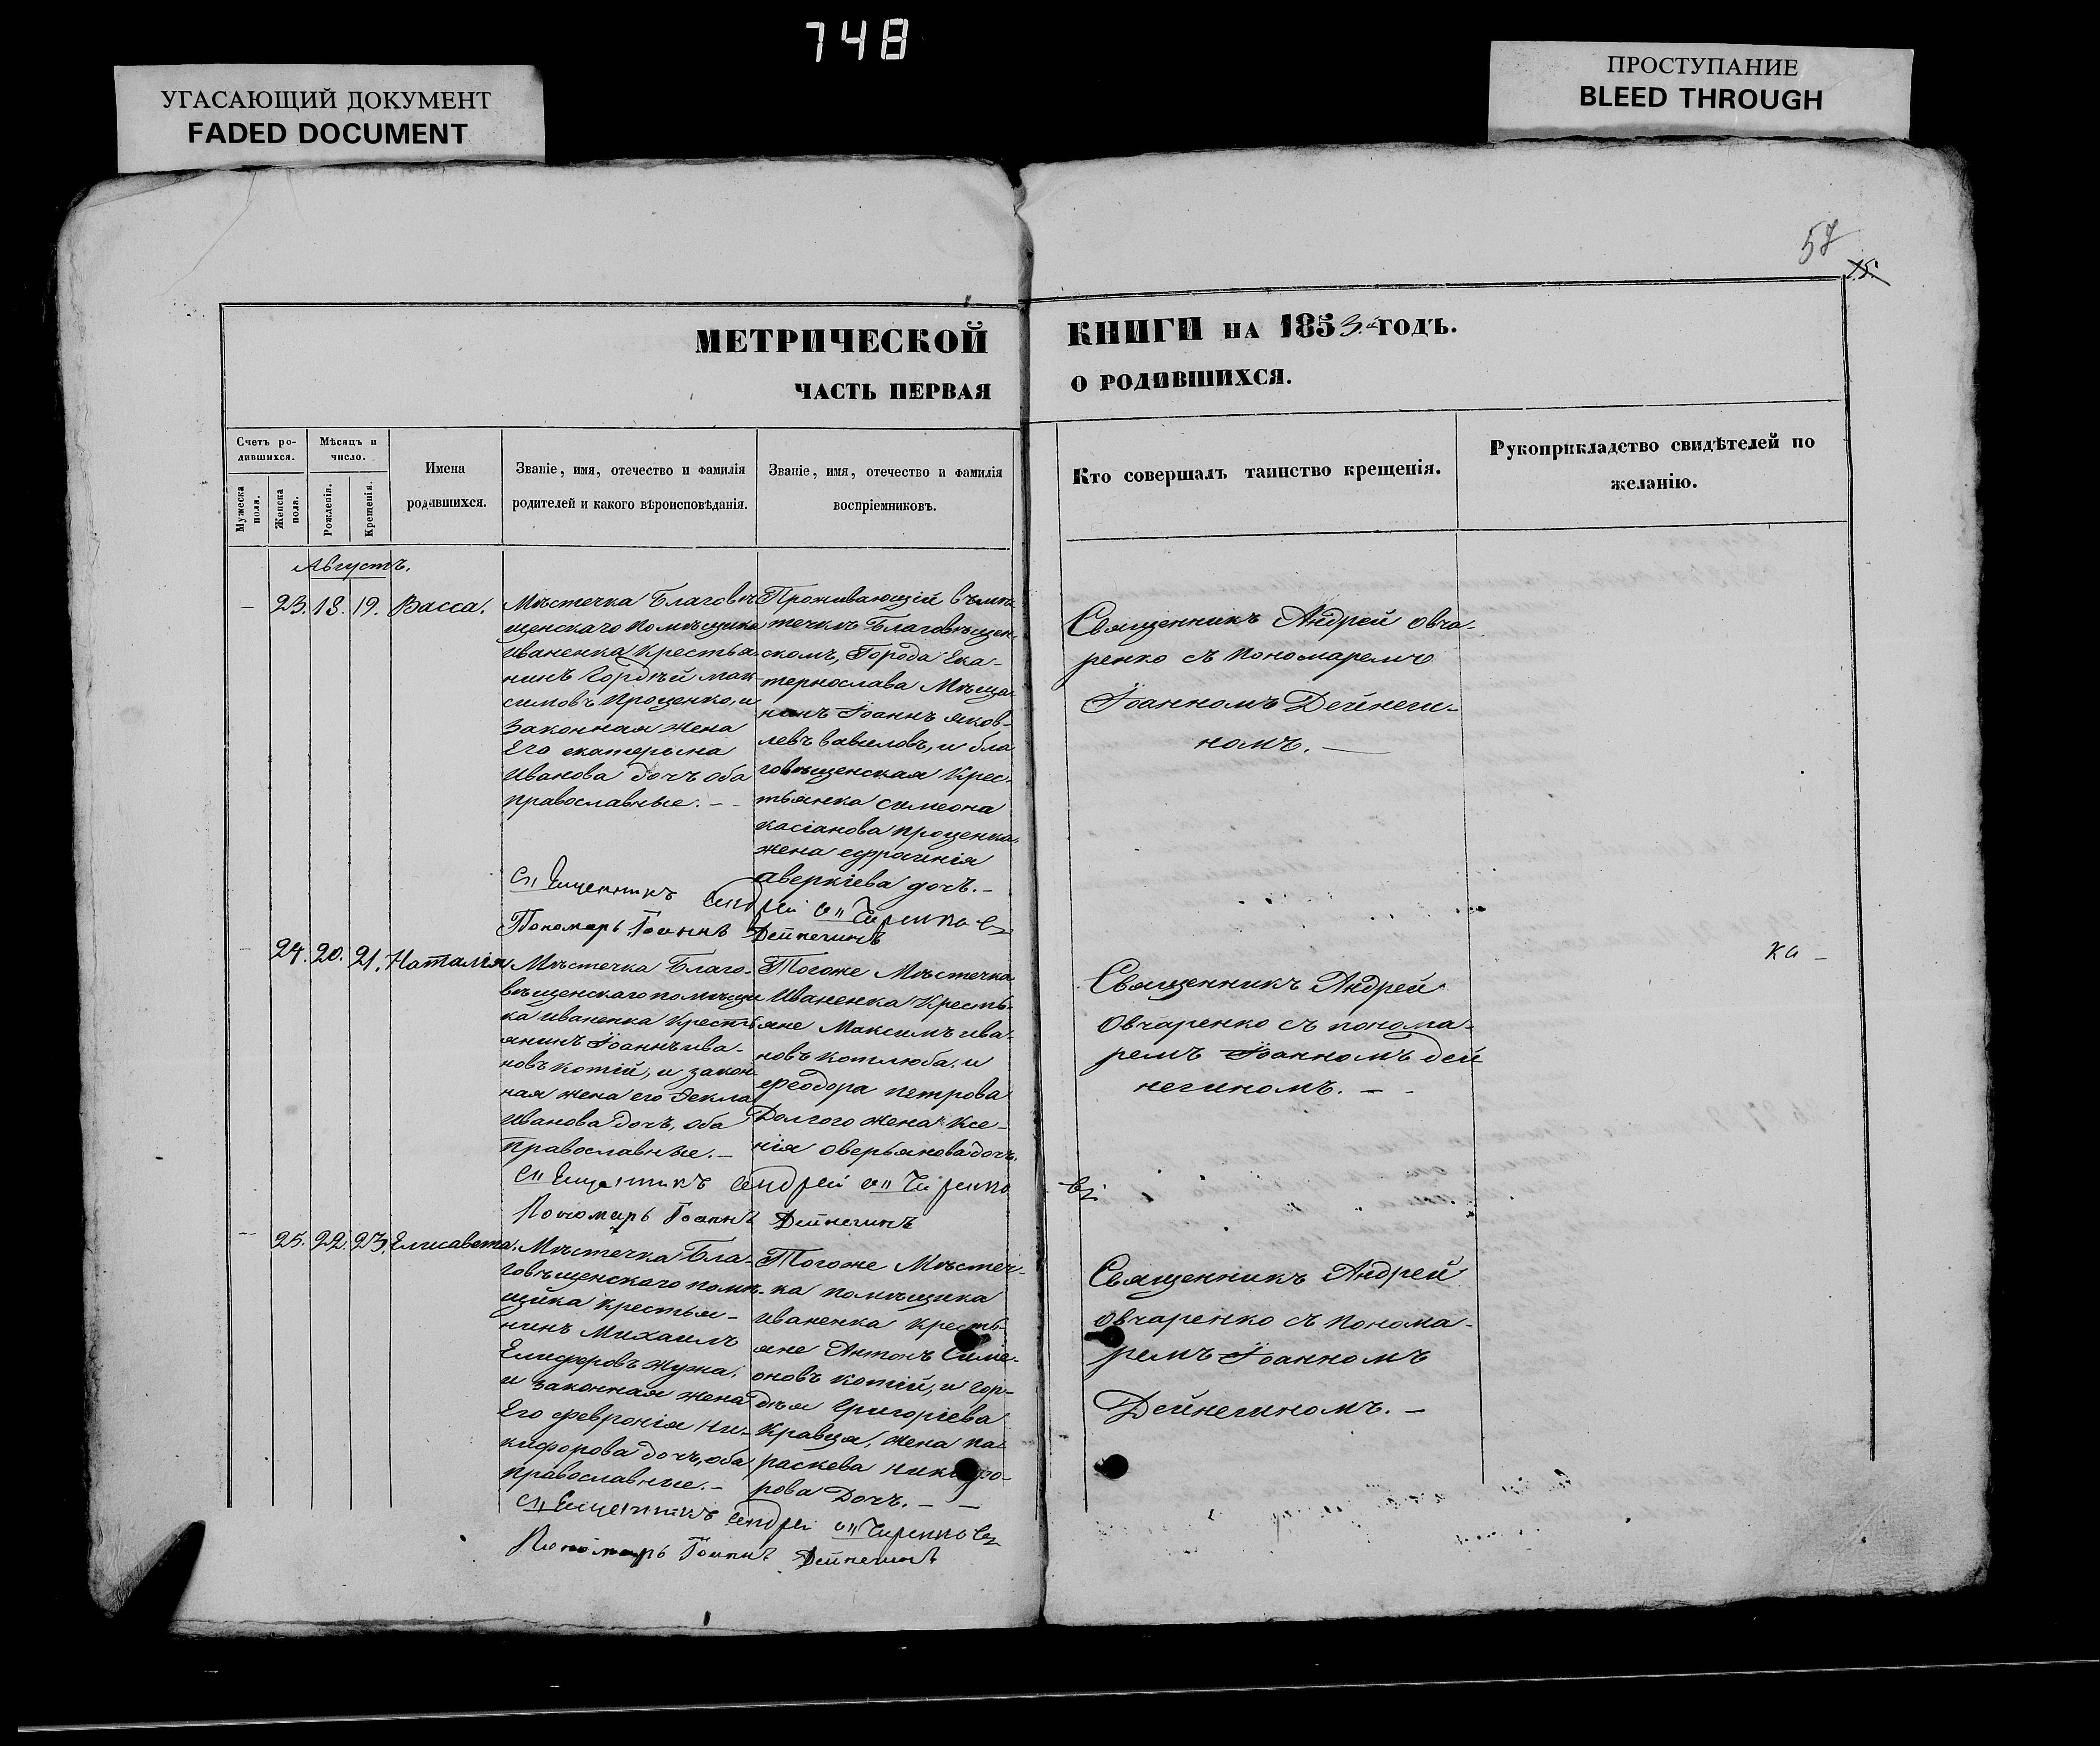 748
УГАСАЮЩИЙ ДОКУМЕНТ
FADED DOCUMENT
ПРОСТУПАНИЕ
BLEED THROUGH
57
15.
МЕТРИЧЕСКОЙ
ЧАСТЬ ПЕРВАЯ
КНИГИ НА 1853.го ГОДЪ.
О РОДИВШИХСЯ.
Счетъ ро-
дившихся.
Мужеска
пола.
Женска
пола.
Мѣсяцъ и
число.
Рожденія.
Крещенія.
Имена
родившихся.
Званіе, имя, отечество и фамилія
родителей и какого вѣроисповѣданія.
Званіе, имя, отечество и фамилія
воспріемниковъ.
Кто совершалъ таинство крещенія.
Рукоприкладство свидѣтелей по
желанію.
Августъ.
— 23. 18. 19. Васса.
Мѣстечка Благовѣ
щенскаго помѣщика
Иваненка Крестья-
нинъ Гордѣй мак-
симовъ Проценко, и
Законная жена
Его екатерына
Иванова дочъ оба
православные. —
Проживающій въ мѣс
течкѣ Благовѣщен-
скомъ, Города Ека-
теринослава Мѣща-
нинъ Іоаннъ яков-
левъ вавиловъ, и бла
говѣщенская Крес-
тьянка симеона
касіанова проценка,
жена ефросинія
аверкіева дочъ. —
Священникъ Андрей Овчаренко
Пономарь Іоаннъ Дейнегинъ
Священникъ Андрей овча-
ренко съ пономаремъ
Іоанномъ Дейнеги-
номъ. —
— 24. 20. 21. Наталія
Мѣстечка Благо-
вѣщенскаго помѣщи
ка иваненка Кресть
янинъ Іоаннъ ива-
новъ котій, и закон
ная жена его Текла
Иванова дочъ, оба
Православные. —
Тогоже Мѣстечка
Иваненка Кресть-
яне Максимъ ива-
новъ котлюба, и
феодора петрова
Долгого жена Ксе-
нія оверьянова дочъ.
Священникъ Андрей Овчаренко
Пономарь Іоаннъ Дейнегинъ
Священникъ Андрей
Овчаренко съ понома-
ремъ Іоанномъ дей
негиномъ. —
ка —
— 25. 22. 23. Елисавета.
Мѣстечка Бла-
говѣщенскаго помѣ-
щика крестья-
нинъ Михаилъ
Елифоровъ
и законная жена
Его февронія Ни-
кифорова дочъ, оба
православные. —
Тогоже Мѣстеч-
ка помѣщика
Иваненка кресть-
яне Антонъ Симе-
оновъ котій, и Гор-
дѣя Григоріева
Кравця, жена па-
раскева Никифо-
рова Дочъ. — —
Священникъ Андрей Овчаренко
Пономарь Іоаннъ Дейнегинъ
Священникъ Андрей
овчаренко съ понома-
ремъ Іоанномъ
Дейнегиномъ. —